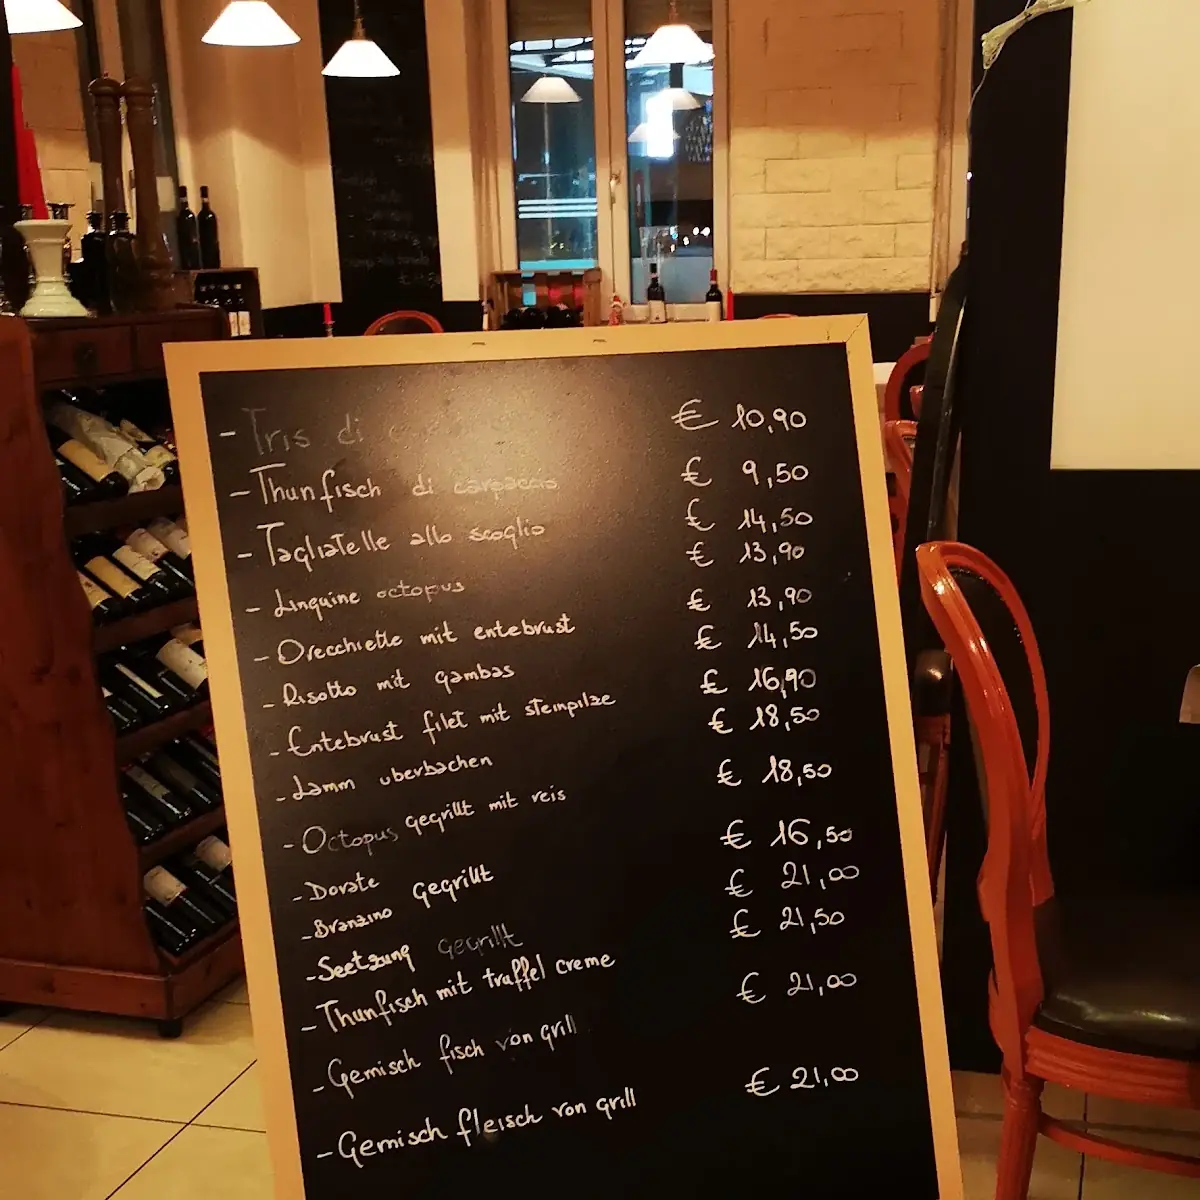 - Tris di € 10,90
- Thunfisch di carpaccio € 9,50
- Tagliatelle allo scoglio € 14,50
- Linguine octopus € 13,90
- Orecchiette mit entebrust € 13,90
- Risotto mit gambas € 14,50
- Entebrust filet mit steinpilze € 16,90
- Lamm uberbachen € 18,50
- Octopus gegrillt mit reis € 18,50
- Dorate
- Branzino gegrillt € 16,50
- Seetzung gegrillt € 21,00
- Thunfisch mit truffel creme € 21,50
- Gemisch fisch von grill € 21,00
- Gemisch fleisch von grill € 21,00